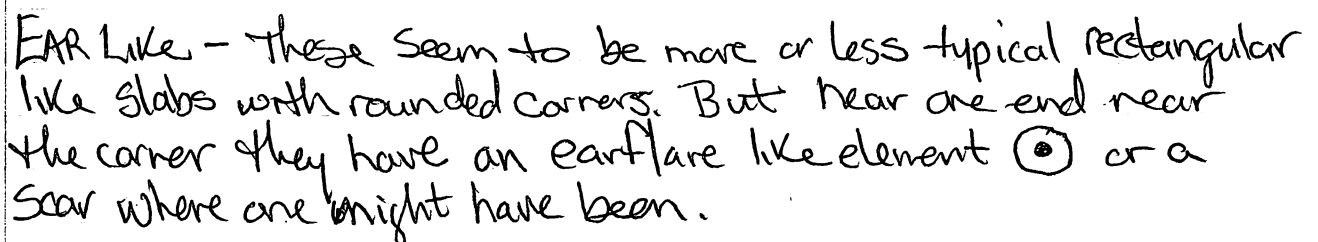 EAR LIKE - These seem to be more or less typical rectangular
like slabs with rounded corners. But near one end near
the corner they have an earflare like element ⊙ or a
scar where one might have been.